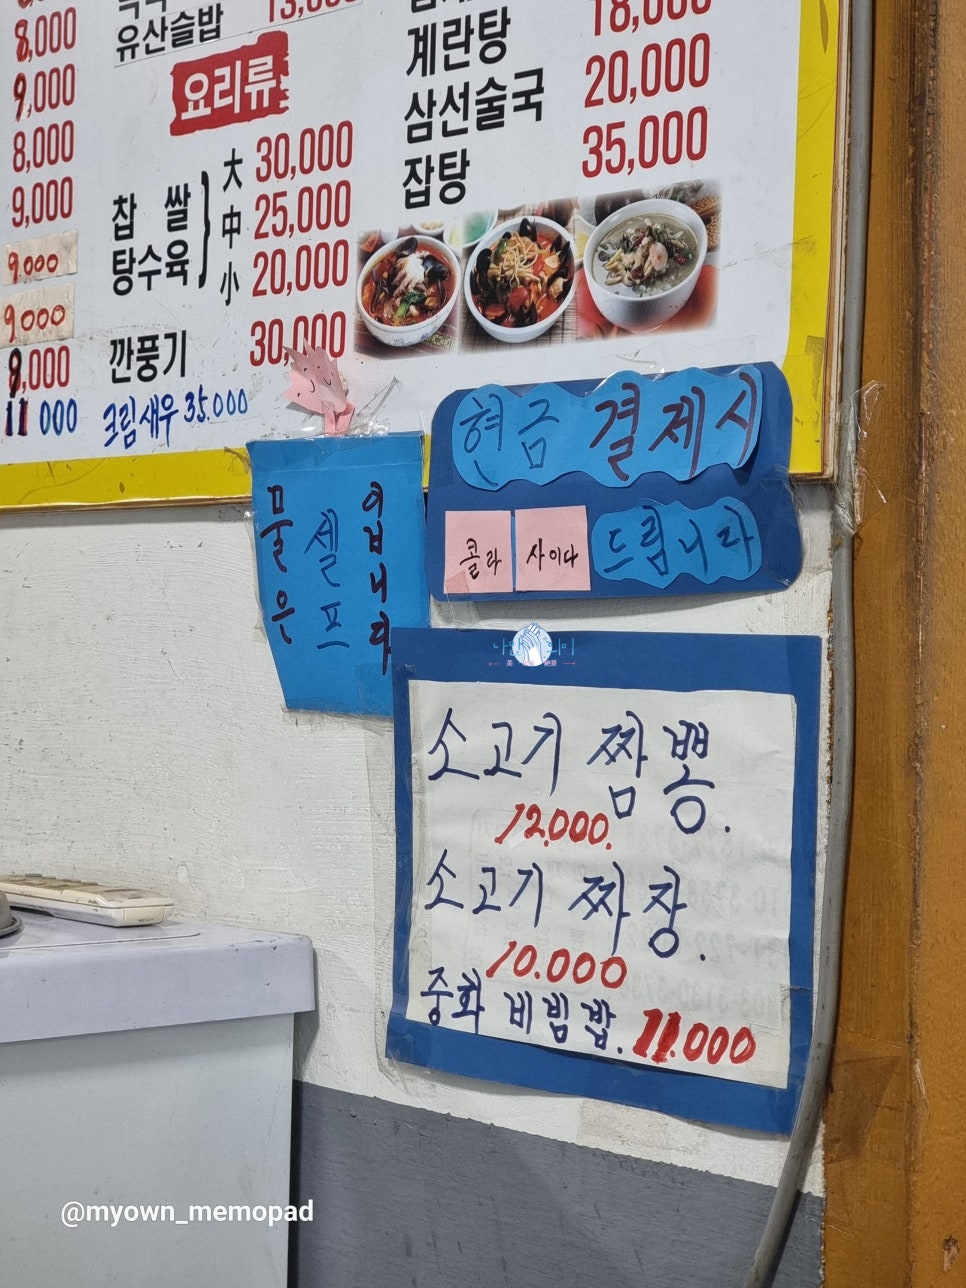 8,000
9,000
8,000
9,000
9.000
9000
8,000
11 000
유산슬밥
13,000
요리류
찹쌀
탕수육
大 30,000
中 25,000
小 20,000
깐풍기 30,000
크림새우 35.000
18,000
계란탕 20,000
삼선술국 35,000
잡탕
현금 결제시
콜라 사이다 드립니다
물은
셀프
입니다
소고기 짬뽕.
12.000.
소고기 짜장.
10.000
중화 비빔밥. 11.000
@myown_memopad